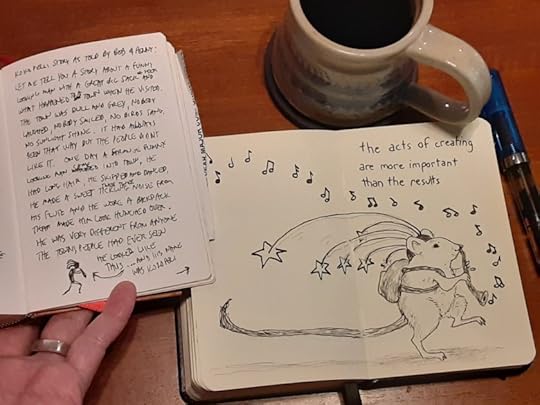 KOKOPELLI STORY AS TOLD BY BOB & PENNY:
LET ME TELL YOU A STORY ABOUT A FUNNY
LOOKING MAN WITH A GREAT BIG SACK AND
WHAT HAPPENED TOWN WHEN HE VISITED.
THE TOWN WAS DULL AND GREY, NOBODY
LAUGHED, NOBODY SMILED, NO BIRDS SANG,
NO SUNLIGHT SHONE. IT HAD ALWAYS
BEEN THAT WAY BUT THE PEOPLE DIDN'T
LIKE IT. ONE DAY A FUNNY
LOOKING MAN INTO TOWN, HE
HAD LONG HAIR. HE SKIPPED AND DANCED.
HE MADE A SWEET NOISE FROM
HIS FLUTE AND HE WORE A BACKPACK
THAT MADE HIM LOOK HUNCHED OVER.
HE WAS VERY DIFFERENT FROM ANYONE
THE TOWNSPEOPLE HAD EVER SEEN
HE LOOKED LIKE
THIS... AND HIS NAME
WAS
the acts of creating
are more important
than the results